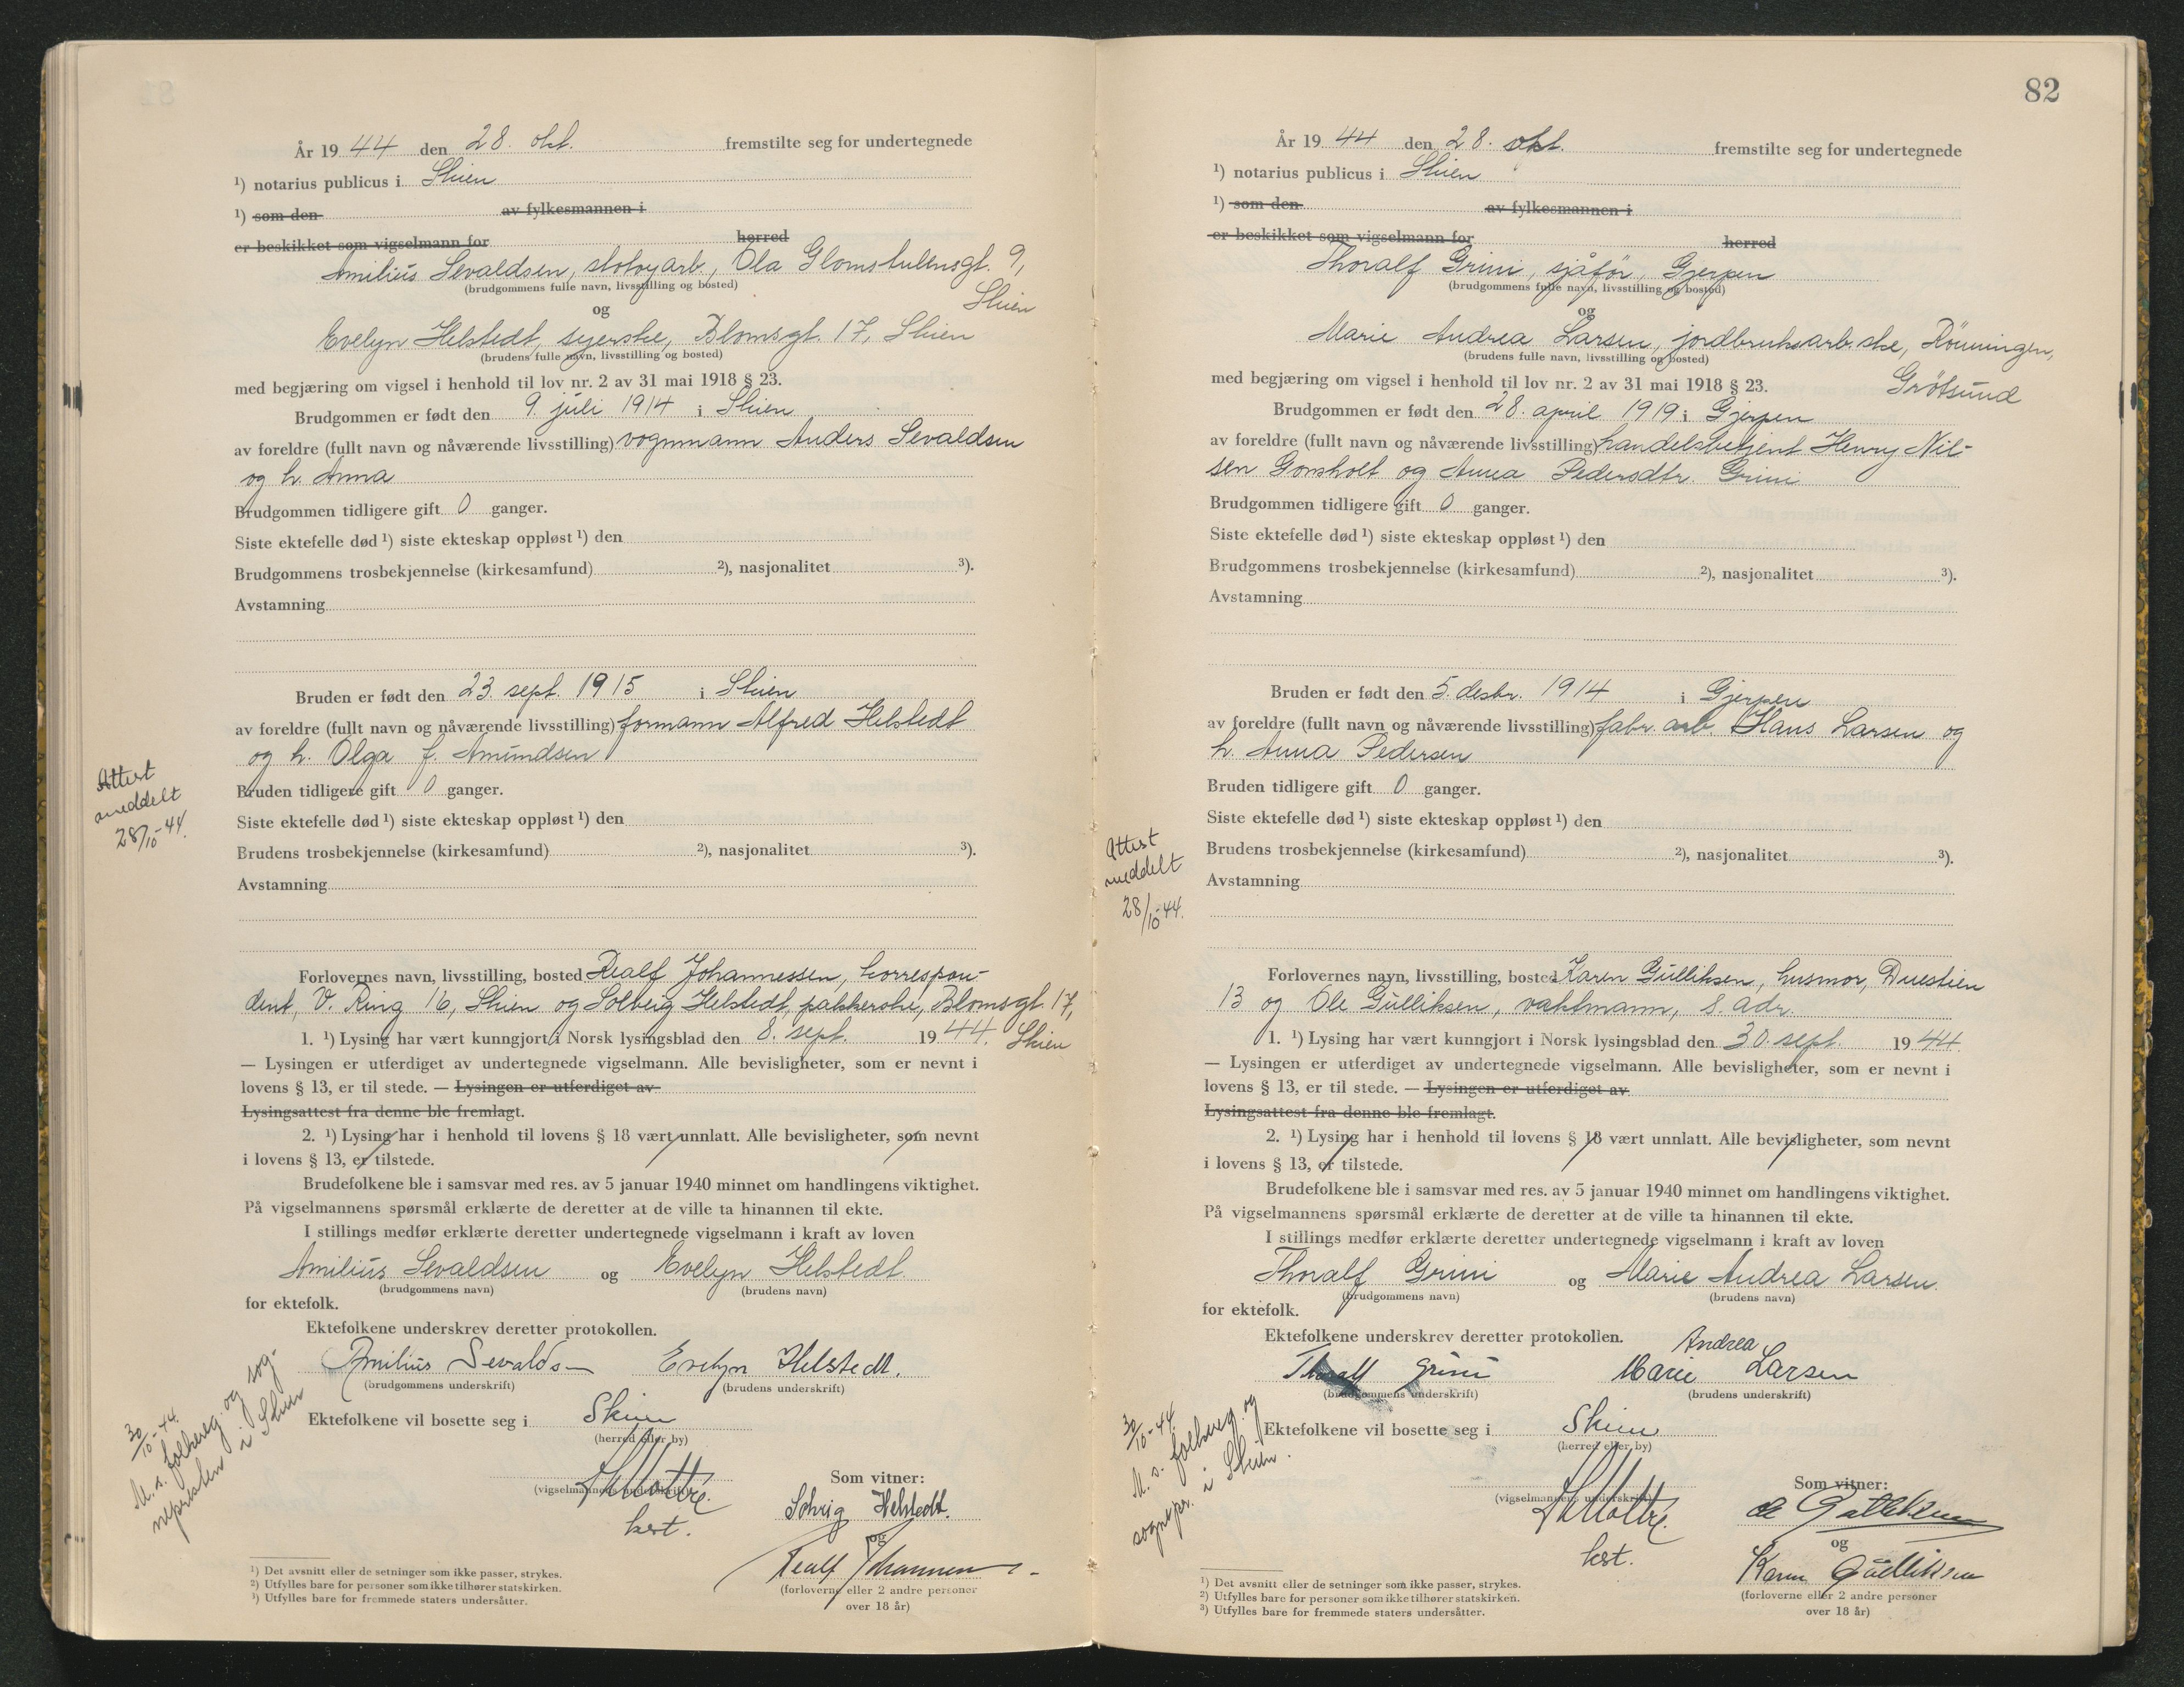 År 19 44 den 28. okt. fremstilte seg for undertegnede
¹) notarius publicus i Skien
¹) som den av fylkesmannen i
er beskikket som vigselmann for herred
Amilius Sevaldsen, skotøyarb., Ola Glomstulensgt. 9,
(brudgommens fulle navn, livsstilling og bosted)
Skien
og
Evelyn Helstedt, syerske, Blomsgt. 17, Skien
(brudens fulle navn, livsstilling og bosted)
med begjæring om vigsel i henhold til lov nr. 2 av 31 mai 1918 § 23.
Brudgommen er født den 9. juli 1914 i Skien
av foreldre (fullt navn og nåværende livsstilling) vognmann Anders Sevaldsen
og h. Anna
Brudgommen tidligere gift 0 ganger.
Siste ektefelle død ¹) siste ekteskap oppløst ¹) den
Brudgommens trosbekjennelse (kirkesamfund) ²), nasjonalitet ³).
Avstamning
Bruden er født den 23. sept. 1915 i Skien
av foreldre (fullt navn og nåværende livsstilling) formann Alfred Helstedt
og h. Olga f. Amundsen
Attest
meddelt
28/10-44.
Bruden tidligere gift 0 ganger.
Siste ektefelle død ¹) siste ekteskap oppløst ¹) den
Brudens trosbekjennelse (kirkesamfund) ²), nasjonalitet ³).
Avstamning
Forlovernes navn, livsstilling, bosted Realf Johannessen, korrespon-
dent, V. Ring 16, Skien og Solveig Helstedt, pakkerske, Blomsgt. 17,
Skien
1. ¹) Lysing har vært kunngjort i Norsk lysingsblad den 8. sept. 19 44.
— Lysingen er utferdiget av undertegnede vigselmann. Alle bevisligheter, som er nevnt i
lovens § 13, er til stede. — Lysingen er utferdiget av
Lysingsattest fra denne ble fremlagt.
2. ¹) Lysing har i henhold til lovens § 18 vært unnlatt. Alle bevisligheter, som nevnt
i lovens § 13, er tilstede.
Brudefolkene ble i samsvar med res. av 5 januar 1940 minnet om handlingens viktighet.
På vigselmannens spørsmål erklærte de deretter at de ville ta hinannen til ekte.
I stillings medfør erklærte deretter undertegnede vigselmann i kraft av loven
Amilius Sevaldsen og Evelyn Helstedt
(brudgommens navn) (brudens navn)
for ektefolk.
Ektefolkene underskrev deretter protokollen.
Amilius Sevaldsen Evelyn Helstedt.
(brudgommens underskrift) (brudens underskrift)
Ektefolkene vil bosette seg i Skien
(herred eller by)
30/10-44.
M. s. folkereg. og sog-
nepresten i Skien
(vigselmannens underskrift)
kst.
Som vitner:
Solveig Helstedt.
og
Realf Johannessen
(forloverne eller 2 andre personer
over 18 år)
¹) Det avsnitt eller de setninger som ikke passer, strykes.
²) Utfylles bare for personer som ikke tilhører statskirken.
³) Utfylles bare for fremmede staters undersåtter.
82
År 19 44 den 28. okt. fremstilte seg for undertegnede
¹) notarius publicus i Skien
¹) som den av fylkesmannen i
er beskikket som vigselmann for herred
Thoralf Grini, sjåfør, Gjerpen
(brudgommens fulle navn, livsstilling og bosted)
og
Marie Andrea Larsen, jordbruksarb.ske, Rönningen,
(brudens fulle navn, livsstilling og bosted)
Grötsund
med begjæring om vigsel i henhold til lov nr. 2 av 31 mai 1918 § 23.
Brudgommen er født den 28. april 1919 i Gjerpen
av foreldre (fullt navn og nåværende livsstilling) handelsbetjent Henry Nil-
sen Gonsholt og Anna Pedersdtr. Grini
Brudgommen tidligere gift 0 ganger.
Siste ektefelle død ¹) siste ekteskap oppløst ¹) den
Brudgommens trosbekjennelse (kirkesamfund) ²), nasjonalitet ³).
Avstamning
Bruden er født den 5. desbr. 1914 i Gjerpen
av foreldre (fullt navn og nåværende livsstilling) fabr. arb. Hans Larsen og
h. Anna Pedersen
Bruden tidligere gift 0 ganger.
Siste ektefelle død ¹) siste ekteskap oppløst ¹) den
Attest
meddelt
28/10-44.
Brudens trosbekjennelse (kirkesamfund) ²), nasjonalitet ³).
Avstamning
Forlovernes navn, livsstilling, bosted Karen Gulliksen, husmor, Duestien
13 og Ole Gulliksen, vaktmann, s. adr.
1. ¹) Lysing har vært kunngjort i Norsk lysingsblad den 30. sept. 19 44.
— Lysingen er utferdiget av undertegnede vigselmann. Alle bevisligheter, som er nevnt i
lovens § 13, er til stede. — Lysingen er utferdiget av
Lysingsattest fra denne ble fremlagt.
2. ¹) Lysing har i henhold til lovens § 18 vært unnlatt. Alle bevisligheter, som nevnt
i lovens § 13, er tilstede.
Brudefolkene ble i samsvar med res. av 5 januar 1940 minnet om handlingens viktighet.
På vigselmannens spørsmål erklærte de deretter at de ville ta hinannen til ekte.
I stillings medfør erklærte deretter undertegnede vigselmann i kraft av loven
Thoralf Grini og Marie Andrea Larsen.
(brudgommens navn) (brudens navn)
for ektefolk.
Ektefolkene underskrev deretter protokollen.
Andrea
Thoralf Grini Marie Larsen
(brudgommens underskrift) (brudens underskrift)
Ektefolkene vil bosette seg i Skien
(herred eller by)
30/10-44.
M. s. folkereg. og
sognepr. i Skien.
(vigselmannens underskrift)
kst.
Som vitner:
Ole Gulliksen
og
Karen Gulliksen
(forloverne eller 2 andre personer
over 18 år)
¹) Det avsnitt eller de setninger som ikke passer, strykes.
²) Utfylles bare for personer som ikke tilhører statskirken.
³) Utfylles bare for fremmede staters undersåtter.